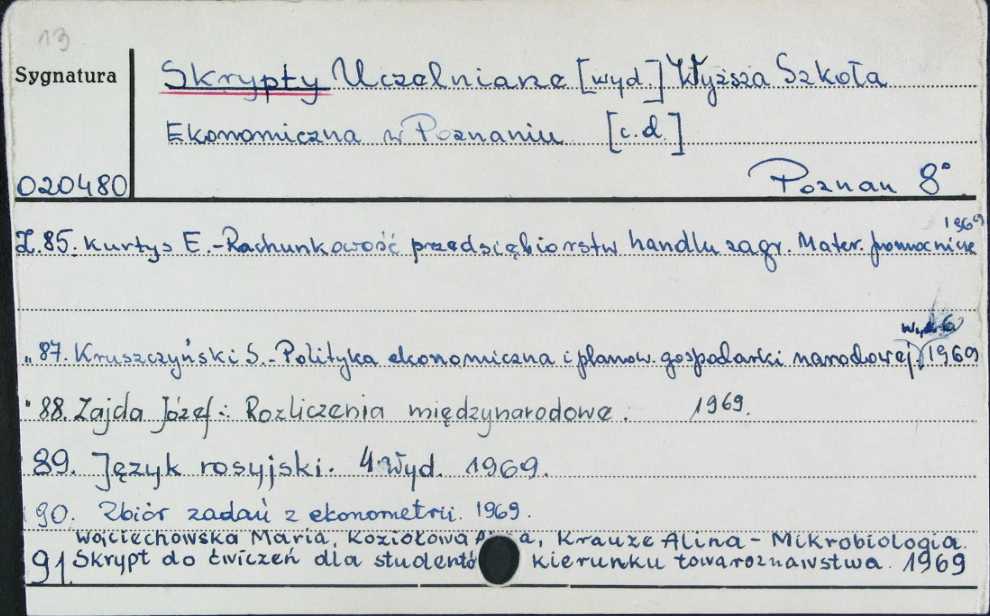 13
Sygnatura
Skrypty Uczelniane [wyd.] Wyższa Szkoła
Ekonomiczna w Poznaniu [c.d.]
020480
Poznań 8°
1969
Z.85. Kurtys E.-Rachunkowość przedsiębiorstw handlu zagr. Mater. pomocnicze
wyd.6
„87. Kruszczyński S.-Polityka ekonomiczna i planow. gospodarki narodowej. 1969
"88. Zajda Józef: Rozliczenia międzynarodowe. 1969.
89. Język rosyjski. 4 Wyd. 1969.
90. Zbiór zadań z ekonometrii. 1969.
Wojciechowska Maria, Koziołowa, Krauze Alina - Mikrobiologia.
91. Skrypt do ćwiczeń dla studentó kierunku towaroznawstwa. 1969